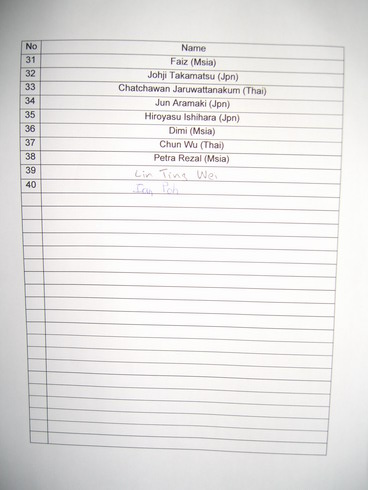 No Name
31 Faiz (Msia)
32 Johji Takamatsu (Jpn)
33 Chatchawan Jaruwattanakum (Thai)
34 Jun Aramaki (Jpn)
35 Hiroyasu Ishihara (Jpn)
36 Dimi (Msia)
37 Chun Wu (Thai)
38 Petra Rezal (Msia)
39 Lin Ting Wei
40